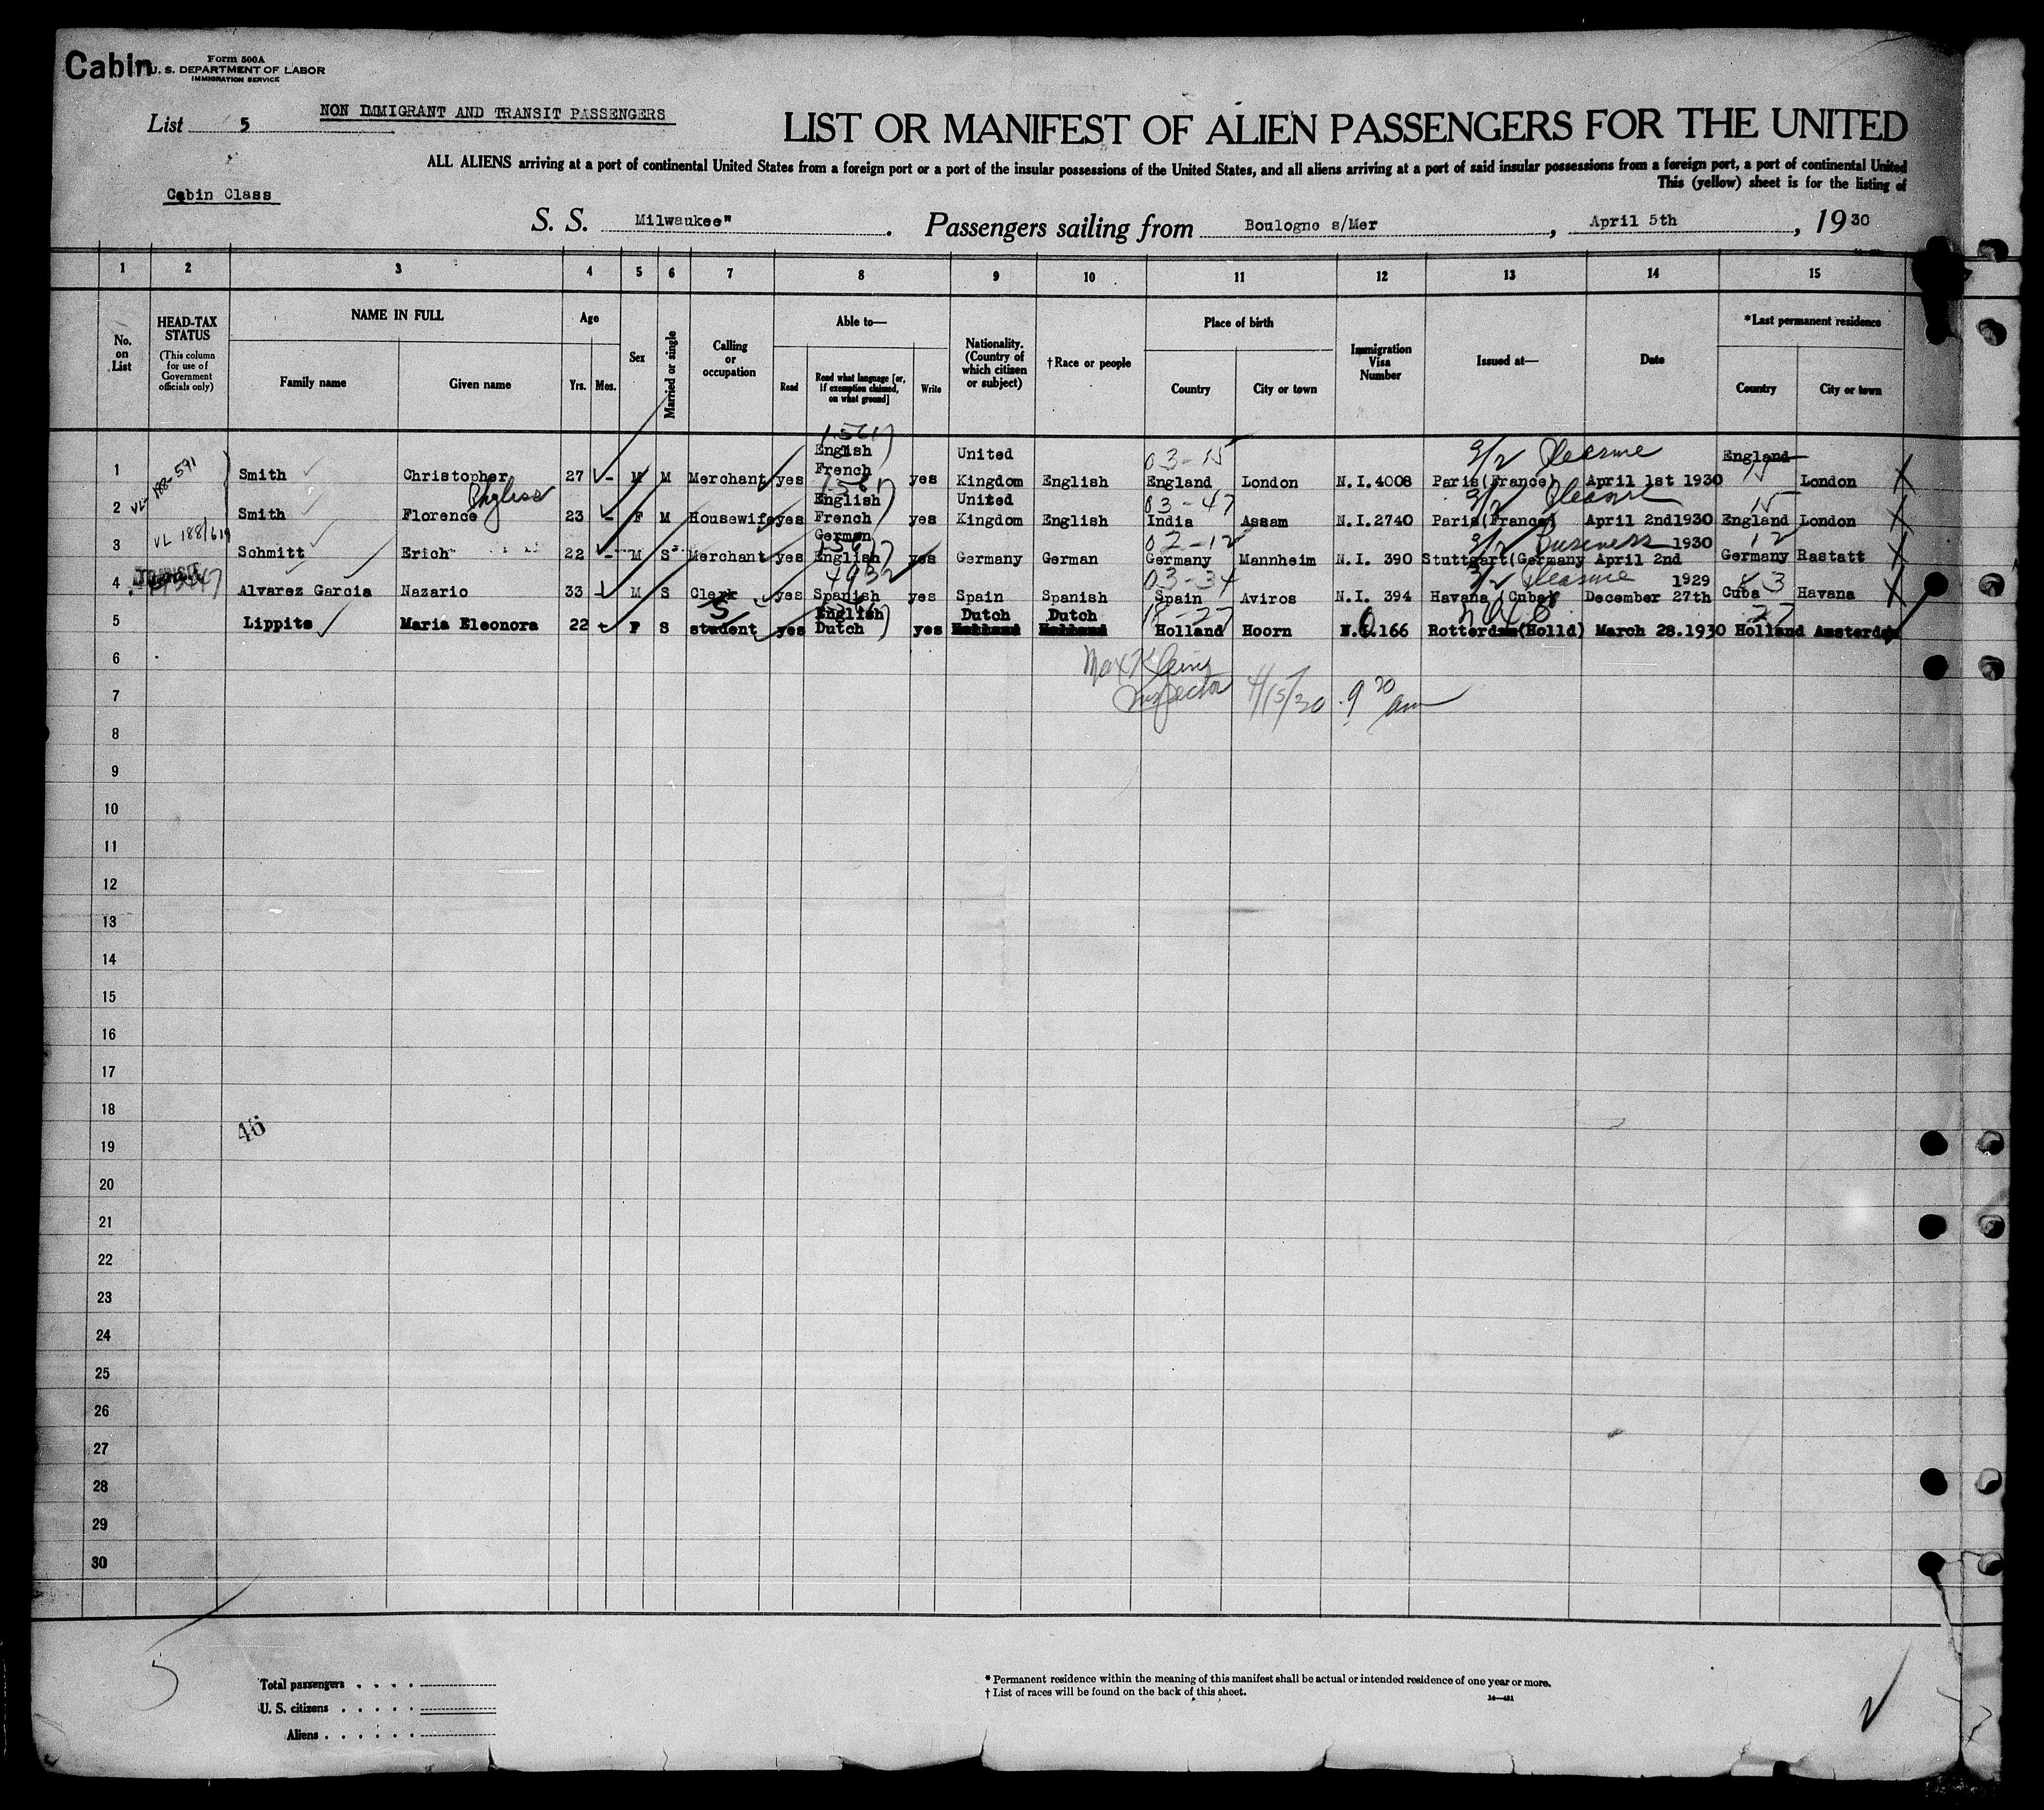 Cabin
Form 500A
U. S. DEPARTMENT OF LABOR
IMMIGRATION SERVICE
NON IMMIGRANT AND TRANSIT PASSENGERS
List 5
LIST OR MANIFEST OF ALIEN PASSENGERS FOR THE UNITED
ALL ALIENS arriving at a port of continental United States from a foreign port or a port of the insular possessions of the United States, and all aliens arriving at a port of said insular possessions from a foreign port, a port of continental United
This (yellow) sheet is for the listing of
Cabin Class
S. S. Milwaukee". Passengers sailing from Boulogne s/Mer, April 5th, 1930
1 2 3 4 5 6 7 8 9 10 11 12 13 14 15
No. on List
HEAD-TAX STATUS
(This column for use of Government officials only)
NAME IN FULL
Family name Given name
Age
Yrs. Mos.
Sex
Married or single
Calling or occupation
Able to—
Read
Read what language [or, if exemption claimed, on what ground]
Write
Nationality. (Country of which citizen or subject)
†Race or people
Place of birth
Country City or town
Immigration Visa Number
Issued at—
Date
*Last permanent residence
Country City or town
VL-188-591
1 Smith Christopher 27 - M M Merchant yes English French yes United Kingdom English 03-15 England London N.I.4008 3/2 Pleasure Paris(France) April 1st 1930 England 15 London X
2 Smith Florence Phyliss 23 - F M Housewife yes English French yes United Kingdom English 03-47 India Assam N.I.2740 3/2 Pleasure Paris(France) April 2nd1930 15 England London X
VL 188/619
3 Schmitt Erich 22 - M S Merchant yes German English yes Germany German 02-12 Germany Mannheim N.I. 390 3/2 Business Stuttgart(Germany April 2nd 1930 12 Germany Rastatt X
4 Alvarez Garcia Nazario 33 - M S Clerk yes 4932 Spanish yes Spain Spanish 03-34 Spain Aviros N.I. 394 3/2 Pleasure Havana (Cuba) December 27th 1929 Cuba Havana X
5 Lippits Maria Eleonora 22 - F S S student yes English Dutch yes Dutch Dutch 18-27 Holland Hoorn 166 Rotterdam(Holld) March 28.1930 27 Holland Amsterdam
6
Max Klein
Inspector 4/15/30 9 30 am
7
8
9
10
11
12
13
14
15
16
17
18
46
19
20
21
22
23
24
25
26
27
28
29
30
5
Total passengers
U. S. citizens
Aliens
* Permanent residence within the meaning of this manifest shall be actual or intended residence of one year or more.
† List of races will be found on the back of this sheet.
14—481